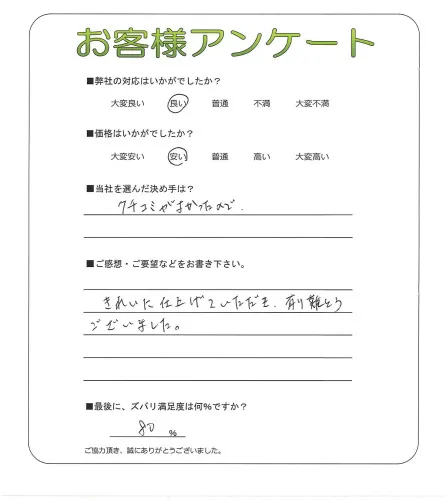 お客様アンケート
■弊社の対応はいかがでしたか?
大変良い 良い 普通 不満 大変不満
■価格はいかがでしたか?
大変安い 安い 普通 高い 大変高い
■当社を選んだ決め手は?
クチコミがよかったので.
■ご感想・ご要望などをお書き下さい。
きれいに仕上げていただき、有り難とう
ございました。
■最後に、ズバリ満足度は何%ですか?
80 %
ご協力頂き、誠にありがとうございました。